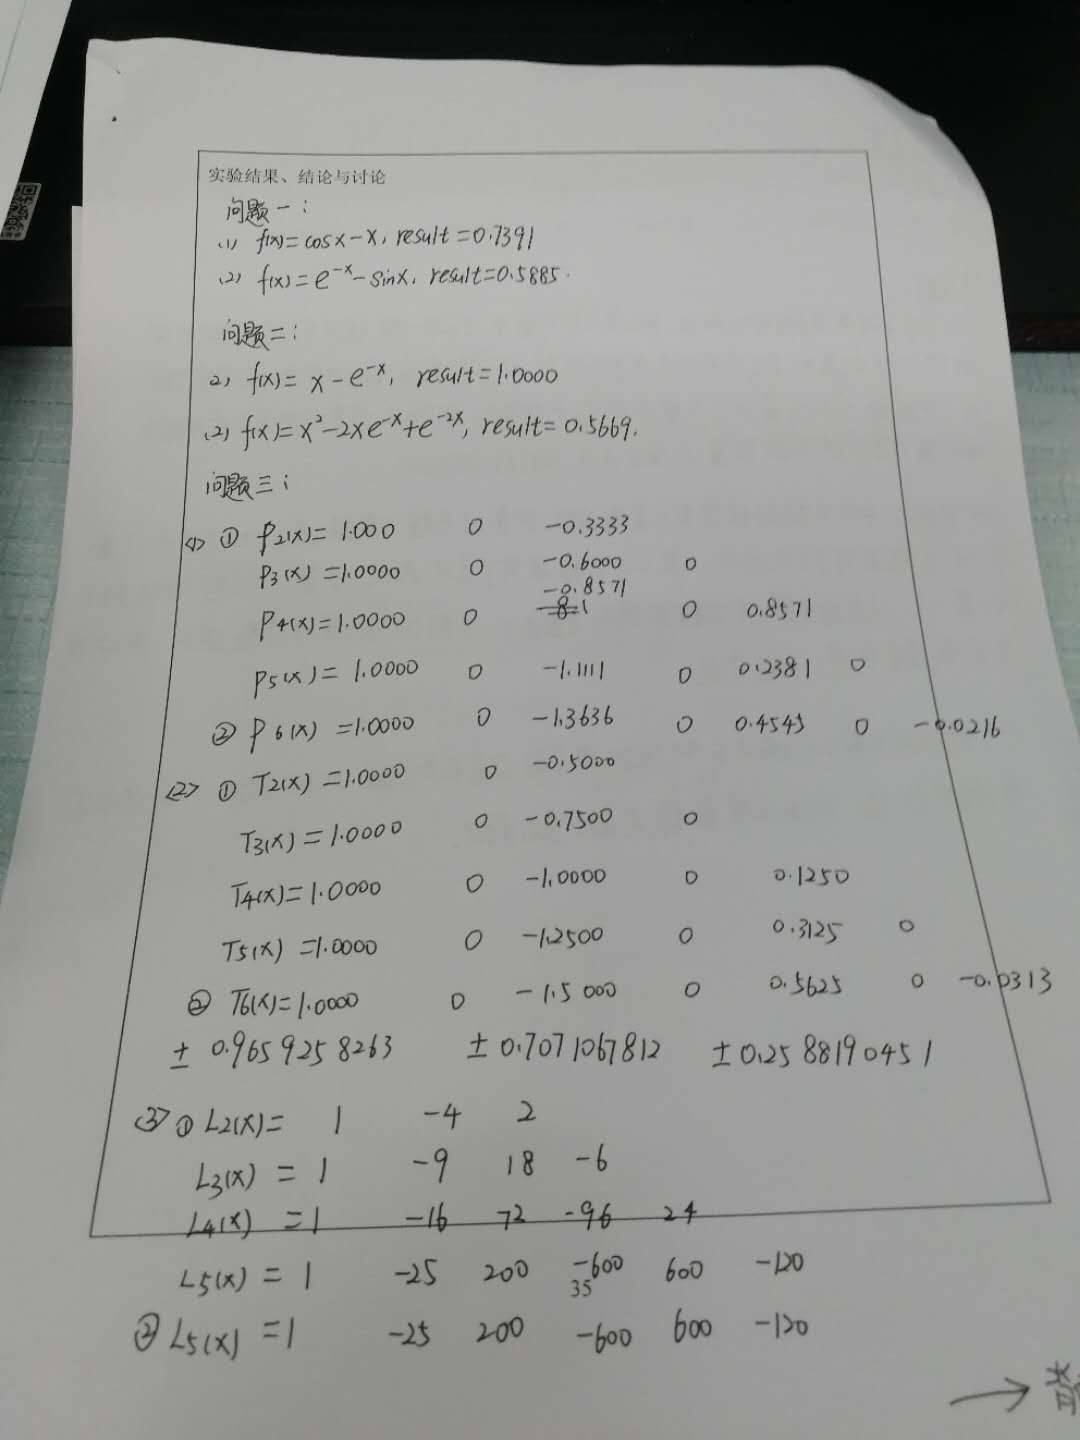 实验结果、结论与讨论
问题一:
(1) f(x)=cosx-x, result=0.7391
(2) f(x)=e^-x-sinx, result=0.5885.
问题二:
(2) f(x)= x-e^-x, result=1.0000
(2) f(x)=x²-2xe^-x+e^-2x, result=0.5669.
问题三:
<1> ① P2(x)=1.000 0 -0.3333
P3(x)=1.0000 0 -0.6000 0
-0.8571
P4(x)=1.0000 0 0 0.8571
P5(x)=1.0000 0 -1.1111 0 0.2381 0
② P6(x)=1.0000 0 -1.3636 0 0.4545 0 -0.0216
<2> ① T2(x)=1.0000 0 -0.5000
T3(x)=1.0000 0 -0.7500 0
T4(x)=1.0000 0 -1.0000 0 0.1250
T5(x)=1.0000 0 -1.2500 0 0.3125 0
② T6(x)=1.0000 0 -1.5000 0 0.5625 0 -0.0313
±0.9659258263 ±0.7071067812 ±0.2588190451
<3> ① L2(x)= 1 -4 2
L3(x)=1 -9 18 -6
L4(x)=1 -16 72 -96 24
L5(x)=1 -25 200 -600 600 -120
35
② L5(x)=1 -25 200 -600 600 -120
→ 背